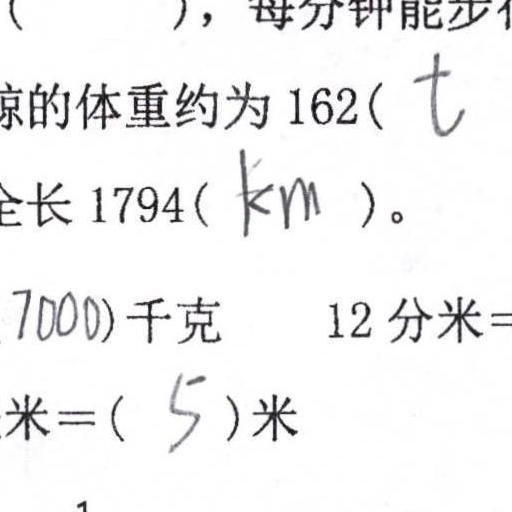 ( ),每分钟能步行
鲸的体重约为 162( t
全长 1794( km )。
7000)千克 12 分米=
米=( 5 )米